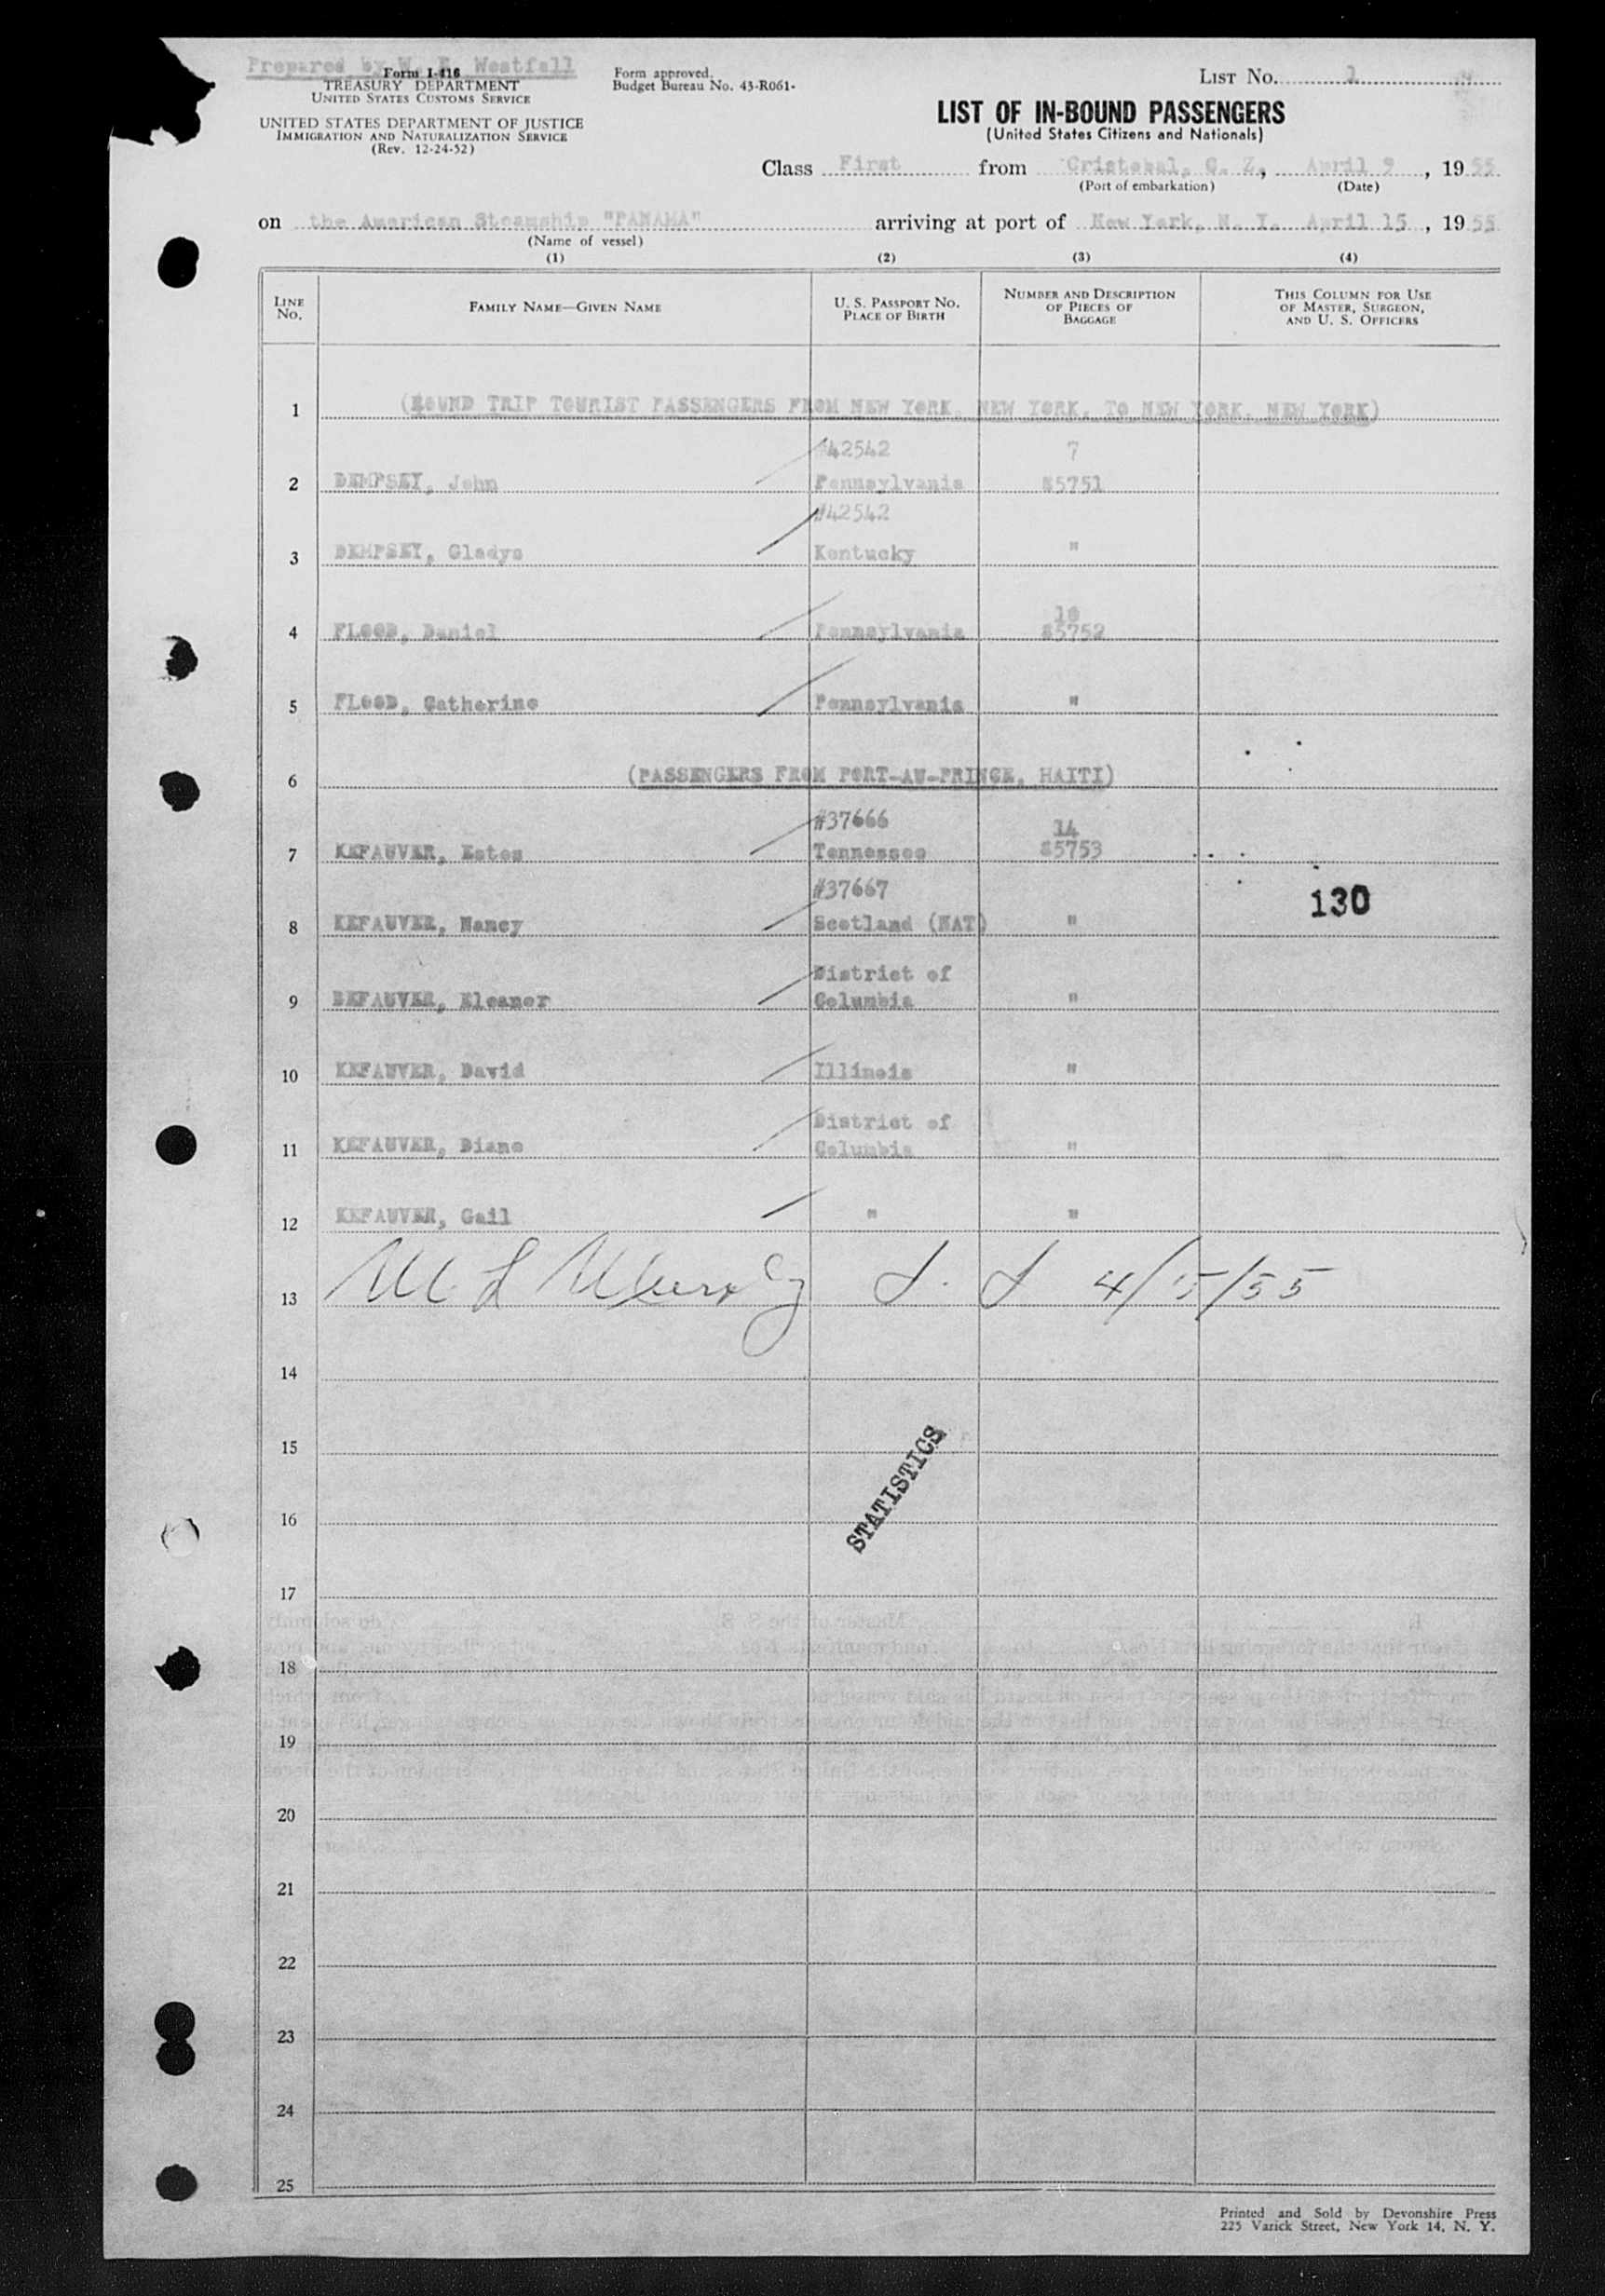 Prepared by W. E. Westfall
Form I-416
TREASURY DEPARTMENT
UNITED STATES CUSTOMS SERVICE
UNITED STATES DEPARTMENT OF JUSTICE
IMMIGRATION AND NATURALIZATION SERVICE
(Rev. 12-24-52)
Form approved.
Budget Bureau No. 43-R061-
LIST No. 1
LIST OF IN-BOUND PASSENGERS
(United States Citizens and Nationals)
Class First from Cristobal, C. Z., April 9, 1955
(Port of embarkation) (Date)
on the American Steamship "PANAMA" arriving at port of New York, N. Y. April 15, 1955
(Name of vessel)
(1) (2) (3) (4)
LINE No. FAMILY NAME—GIVEN NAME U. S. PASSPORT NO. PLACE OF BIRTH NUMBER AND DESCRIPTION OF PIECES OF BAGGAGE THIS COLUMN FOR USE OF MASTER, SURGEON, AND U. S. OFFICERS
1 (ROUND TRIP TOURIST PASSENGERS FROM NEW YORK, NEW YORK, TO NEW YORK, NEW YORK)
#42542 7
2 DEMPSEY, John Pennsylvania #5751
#42542
3 DEMPSEY, Gladys Kentucky "
10
4 FLOOD, Daniel Pennsylvania #5752
5 FLOOD, Catherine Pennsylvania "
6 (PASSENGERS FROM PORT-AU-PRINCE, HAITI)
#37666 14
7 KEFAUVER, Estes Tennessee #5753
#37667
130
8 KEFAUVER, Nancy Scotland (NAT) "
District of
9 BEFAUVER, Eleanor Columbia "
10 KEFAUVER, David Illinois "
District of
11 KEFAUVER, Diane Columbia "
12 KEFAUVER, Gail " "
13 4/15/55
14
15
STATISTICS
16
17
18
19
20
21
22
23
24
25
Printed and Sold by Devonshire Press
225 Varick Street, New York 14, N. Y.